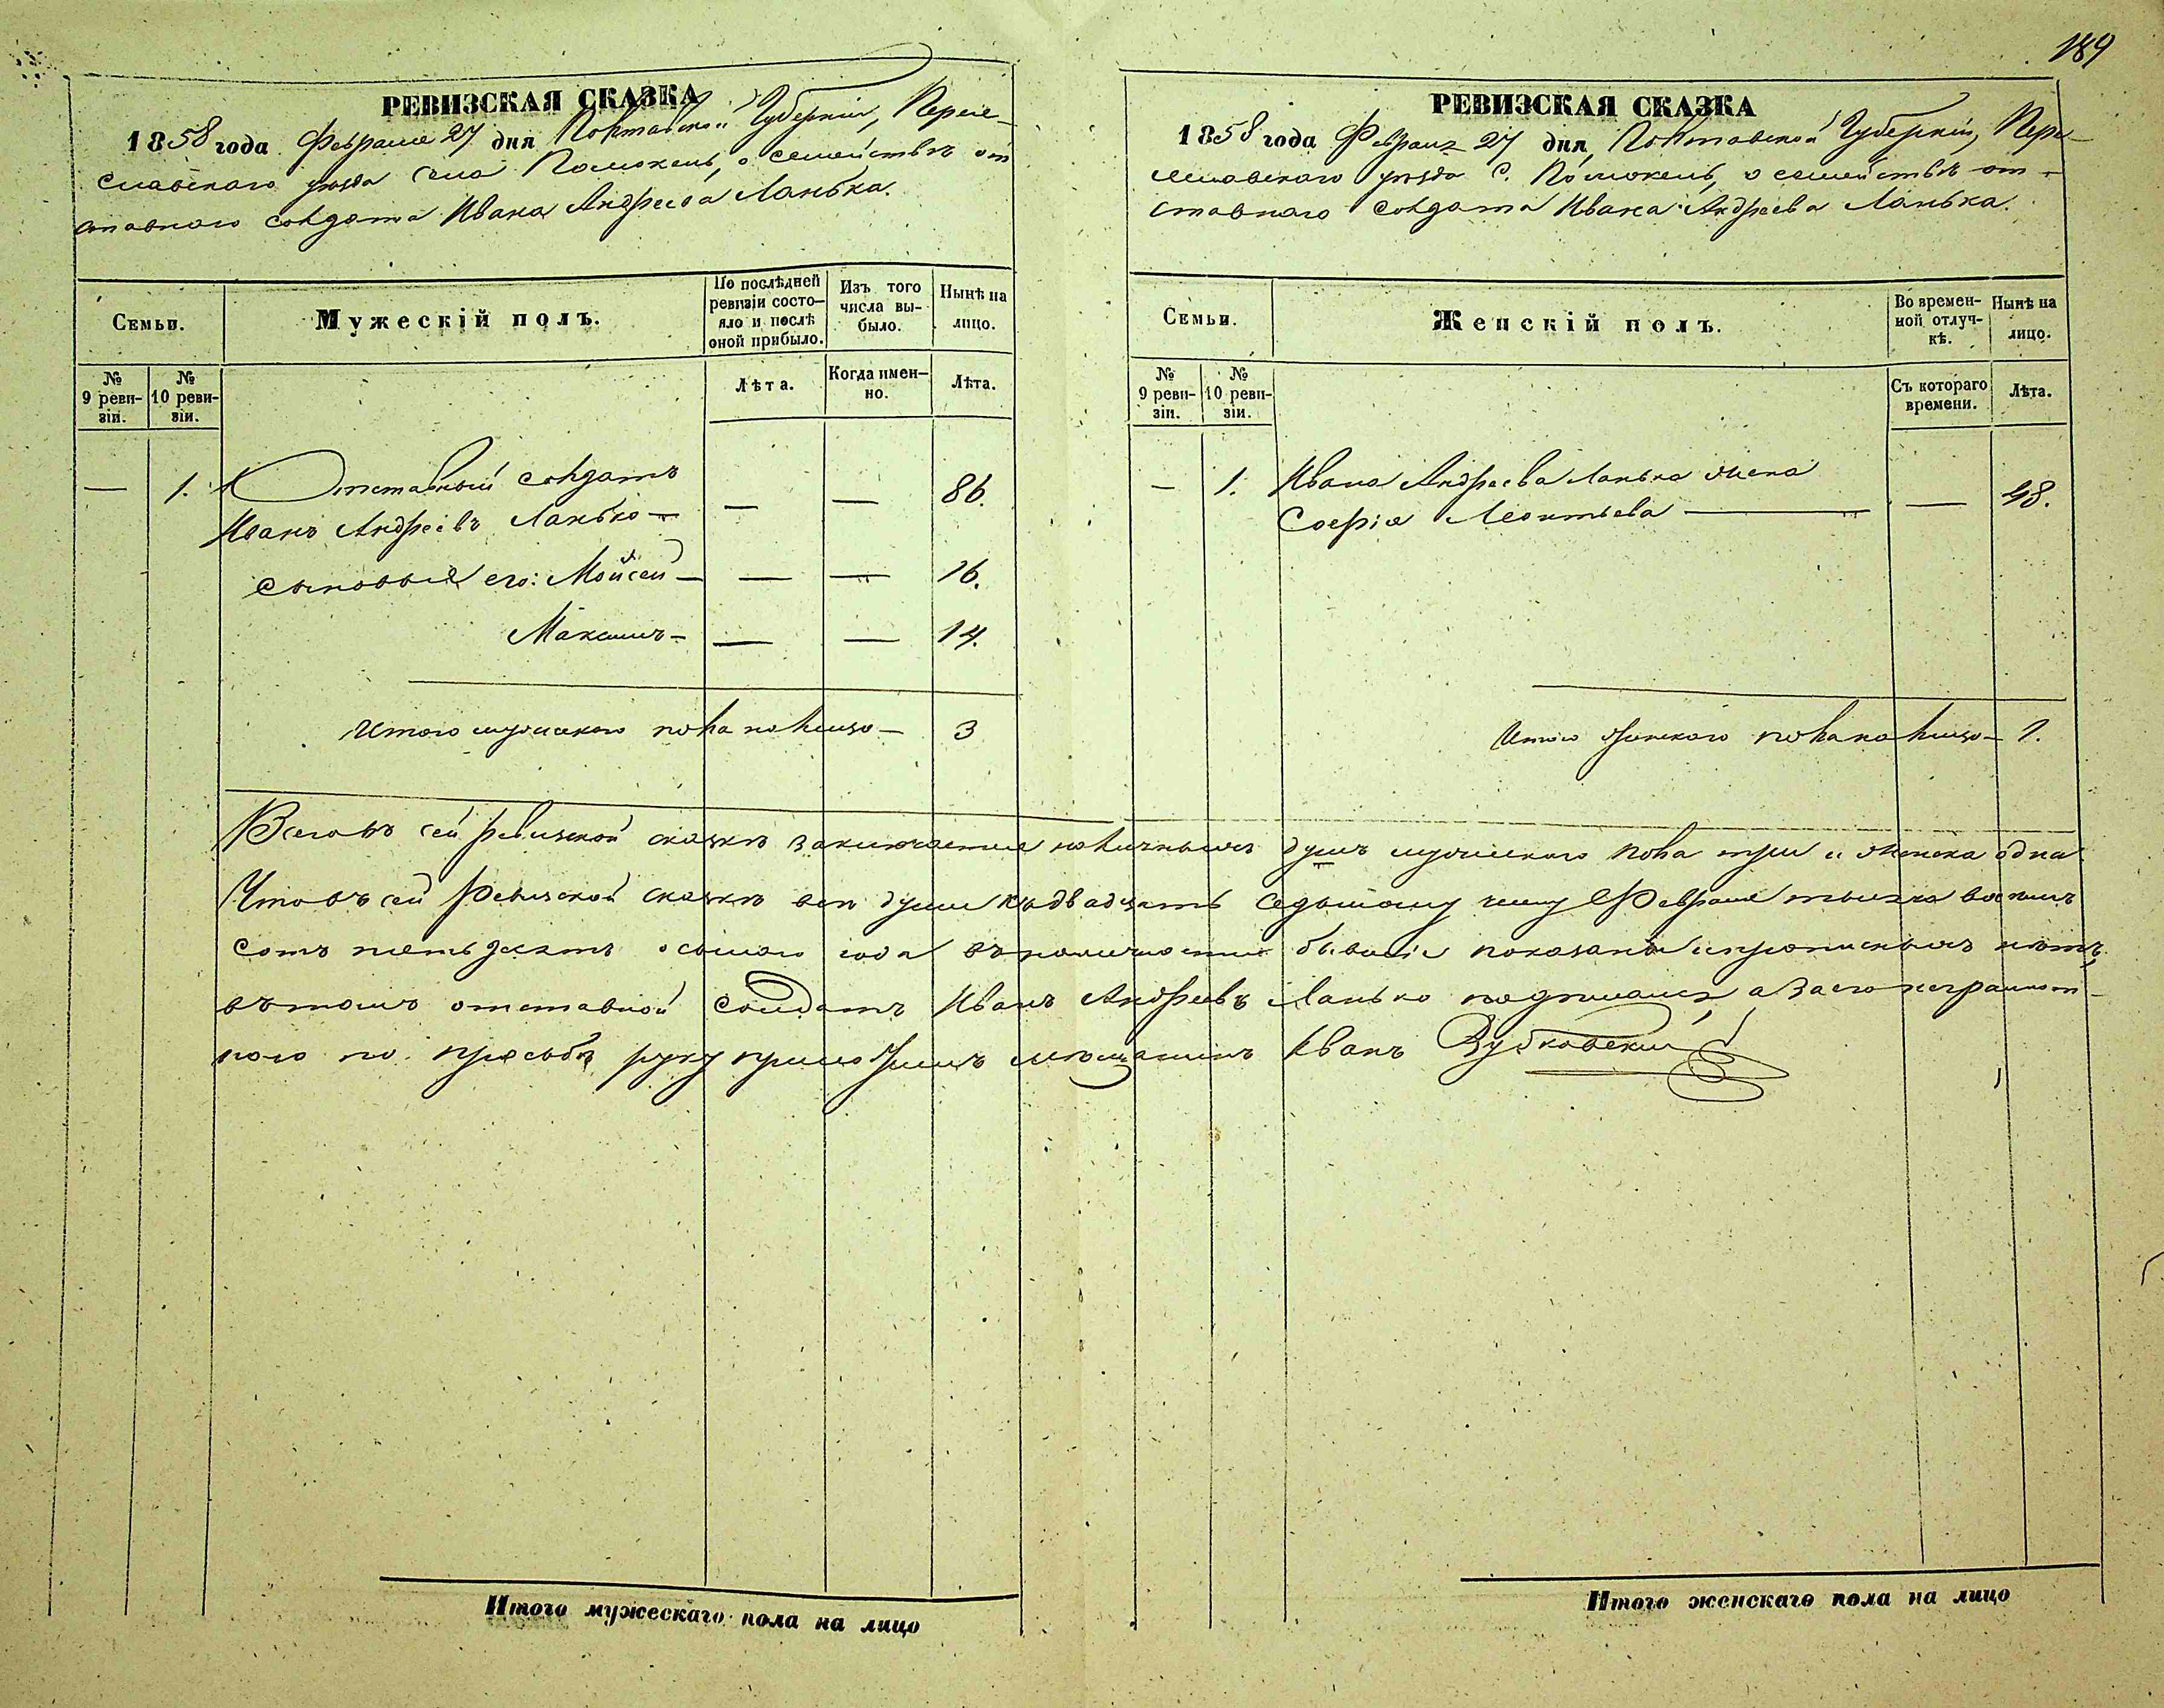 189
РЕВИЗСКАЯ СКАЗКА
1858 года Февраля 27 дня Полтавской Губерніи, Перея-
славскаго уѣзда села Помоклей, о семействѣ от
ставнаго солдата Ивана Андреева Ланька.
Семьи.
Мужескій полъ.
По послѣдней
ревизіи состо-
яло и послѣ
оной прибыло.
Изъ того
числа вы-
было.
Нынѣ на
лицо.
№
9 реви-
зіи.
№
10 реви-
зіи.
Лѣта.
Когда имен-
но.
Лѣта.
— 1. Отставный солдатъ
Иванъ Андреевъ Ланько — — — 86.
сыновья его: Мойсей — — — 16.
Максимъ — — — 14.
Итого мужескаго пола на лицо — 3
РЕВИЗСКАЯ СКАЗКА
1858 года Февраля 27 дня Полтавской Губерніи, Пере-
яславскаго уѣзда С. Помоклей, о семействѣ от-
ставнаго солдата Ивана Андреева Ланька.
Семьи.
Женскій полъ.
Во времен-
ной отлуч-
кѣ.
Нынѣ на
лицо.
№
9 реви-
зіи.
№
10 реви-
зіи.
Съ котораго
времени.
Лѣта.
— 1. Ивана Андреева Ланька жена
Софія Леонтьева — — 48.
Итого женскаго пола на лицо — 1.
Всего въ сей ревизской сказкѣ заключается наличныхъ душъ мужескаго пола три и женска одна
Что въ сей Ревизской сказкѣ всѣ души къ двадцать седьмому числу Февраля тысяча восемь
сотъ пятьдесятъ осьмаго года въ наличности бывшіе показаны и прописныхъ нѣтъ,
въ томъ отставной солдатъ Иванъ Андреевъ Ланько подписался, а за его неграмот-
наго по прозьбѣ руку приложилъ мѣщанинъ Иванъ Зубковскій
Итого мужескаго пола на лицо
Итого женскаго пола на лицо